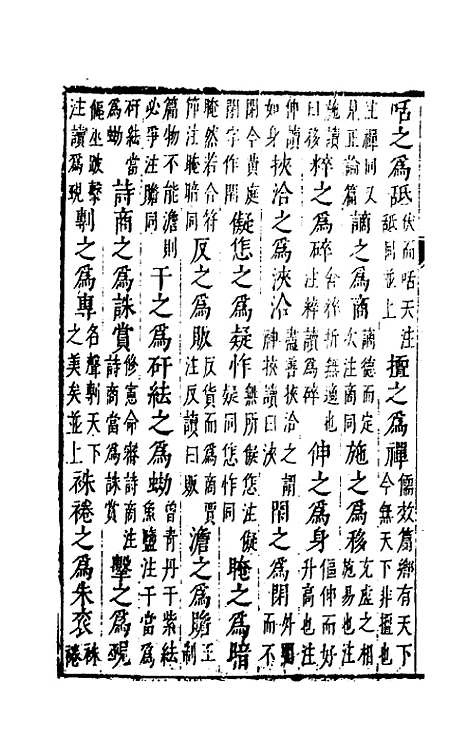 咶之爲舐伏而咶天注舐同並上擅之爲禪儒效篇鄉有天下今無天下非擅也
注禪同又見正論篇謫之爲商謫德而定次注商同施之爲移充虛之相施易也注
施讀曰移粹之爲碎舍粹折無適也注粹讀爲碎伸之爲身偪伸而好升高也注
伸讀如身挾洽之爲浹洽盡善挾洽之謂神挾讀曰浹閒之爲閉外闚而不
閉今黃庭閉字作閒儗怎之爲疑怍無所儗怎注儗疑同怎怍同晻之爲暗
晻然若合符節注暗同反之爲販反貨而爲商賈注反讀曰販澹之爲贍王制
篇物不能澹則必爭注贍同干之爲矸紶之爲蚴曾青丹干紫紶魚鹽注干當爲
矸紶當爲蚴詩商之爲誅賞修憲命審詩商注詩商當爲誅賞擊之爲覡
傴巫跛擊注讀爲覡剸之爲專名聲剸天下之美矣並上袾裷之爲朱衮袾裷